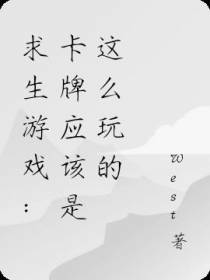 求生游戏：
卡牌应该是
这么玩的
west 著